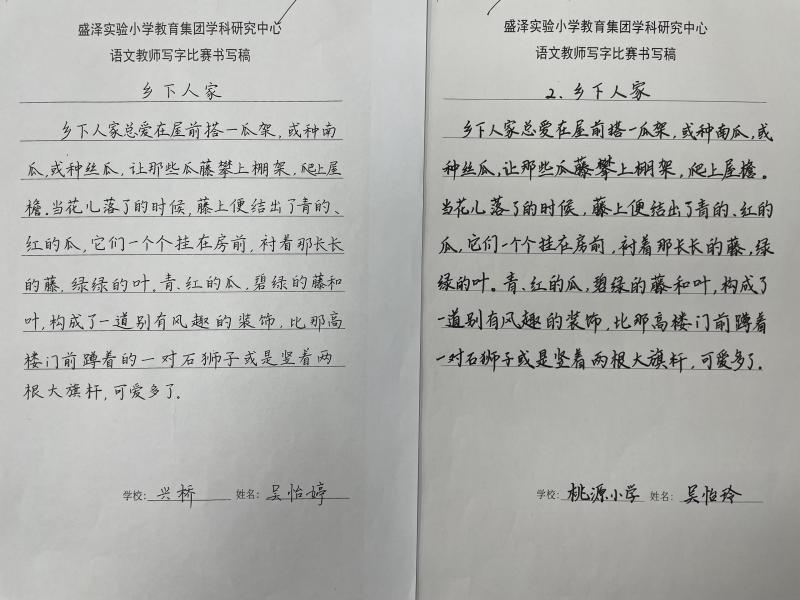 盛泽实验小学教育集团学科研究中心
语文教师写字比赛书写稿
乡下人家
乡下人家总爱在屋前搭一瓜架,或种南
瓜,或种丝瓜,让那些瓜藤攀上棚架,爬上屋
檐。当花儿落了的时候,藤上便结出了青的、
红的瓜,它们一个个挂在房前,衬着那长长
的藤,绿绿的叶。青、红的瓜,碧绿的藤和
叶,构成了一道别有风趣的装饰,比那高
楼门前蹲着的一对石狮子或是竖着两
根大旗杆,可爱多了。
学校:兴桥 姓名:吴怡婷
盛泽实验小学教育集团学科研究中心
语文教师写字比赛书写稿
2、乡下人家
乡下人家总爱在屋前搭一瓜架,或种南瓜,或
种丝瓜,让那些瓜藤攀上棚架,爬上屋檐。
当花儿落了的时候,藤上便结出了青的、红的
瓜,它们一个个挂在房前,衬着那长长的藤,绿
绿的叶。青、红的瓜,碧绿的藤和叶,构成了
一道别有风趣的装饰,比那高楼门前蹲着
一对石狮子或是竖着两根大旗杆,可爱多了。
学校:桃源小学 姓名:吴怡玲